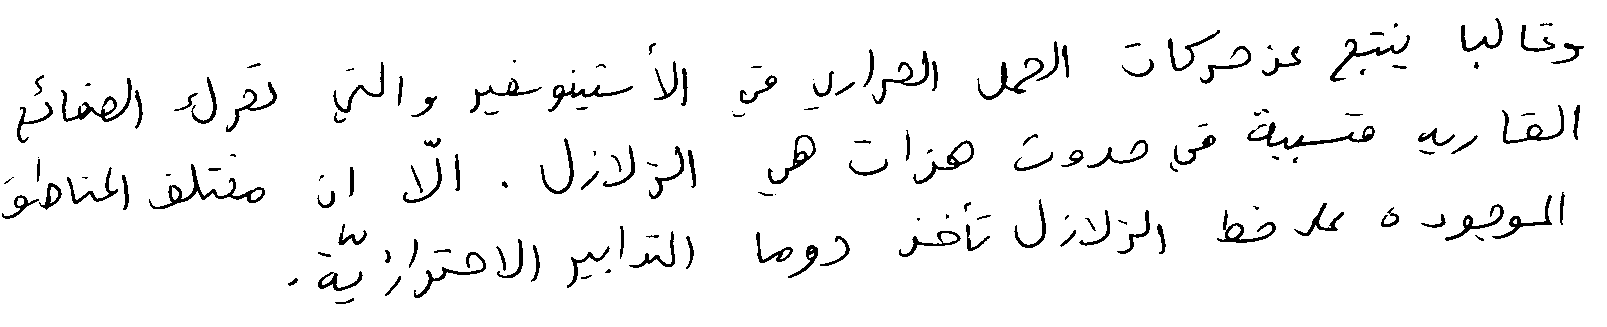 وغالبا ينتج عن حركات الحمل الحراري في الأستينوسفير والتي تحرك الصفائح
القاريه متسببة في حدوث هزات هي الزلازل . الّا ان مختلف المناطق
الموجوده على خط الزلازل تأخذ دوما التدابير الاحترازيّة .